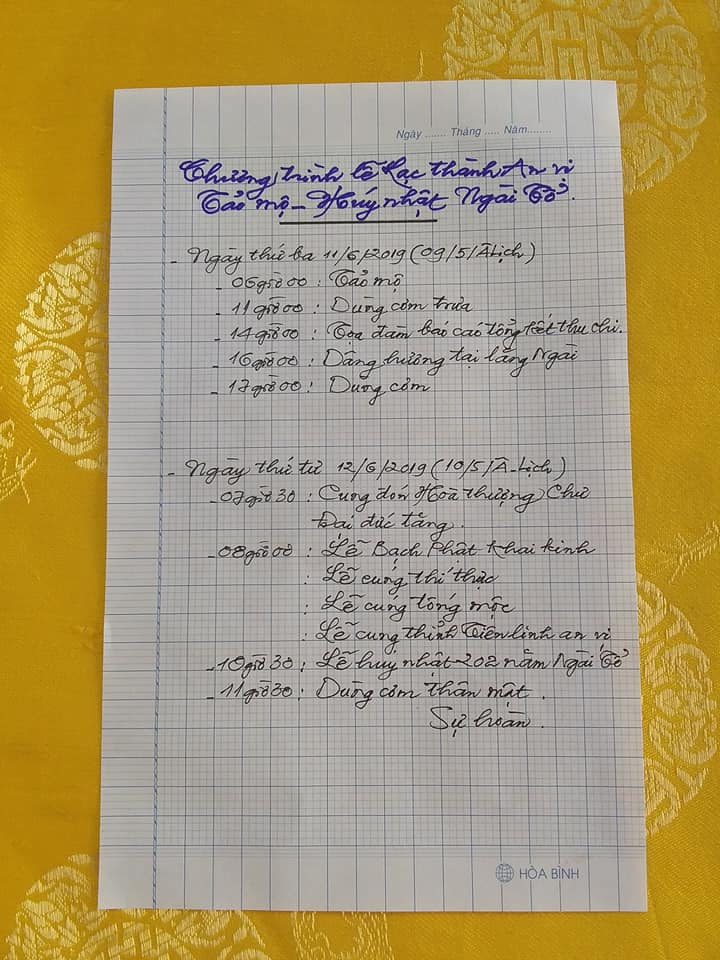 Ngày ....... Tháng ..... Năm........
Chương trình lễ Lạc thành An vị
Tảo mộ - Húy nhật Ngài Tổ.
- Ngày thứ ba 11/6/2019 (09/5/Â Lịch)
- 06giờ00 : Tảo mộ
- 11giờ00 : Dùng cơm trưa
- 14giờ00 : Tọa đàm báo cáo tổng kết thu chi.
- 16giờ00 : Dâng hương tại lăng Ngài
- 17giờ00 : Dùng cơm
- Ngày thứ tư 12/6/2019 (10/5/Â-Lịch)
- 07giờ30 : Cung đón Hòa thượng Chư
Đại đức tăng.
- 08giờ00 : Lễ Bạch Phật khai kinh
: Lễ cúng thí thực
: Lễ cúng tống mộc
: Lễ cung thỉnh Tiên linh an vị
- 10giờ30 : Lễ húy nhật 202 năm Ngài Tổ
- 11giờ30 : Dùng cơm thân mật.
Sự hoàn.
HÒA BÌNH